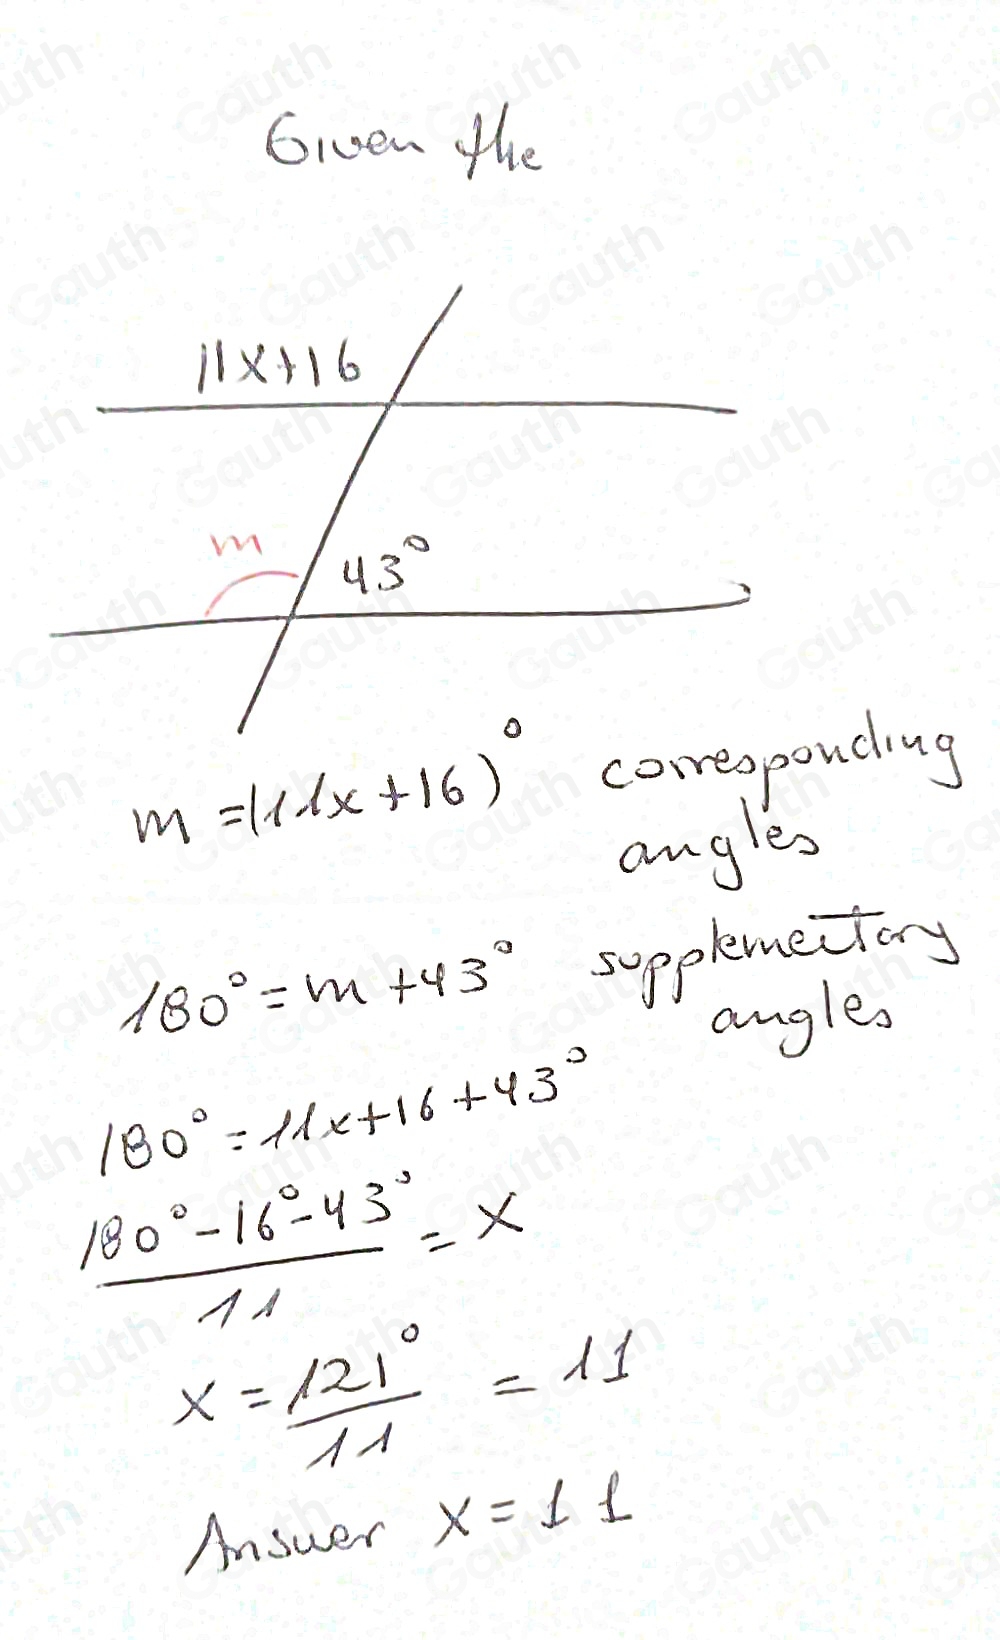 Given the
11x+16
m
43°
m = (11x+16)° corresponding
angles
180° = m + 43° supplementary
angles
180° = 11x+16+43°
180°-16°-43° = x
11
x = 121° = 11
11
Answer x = 11